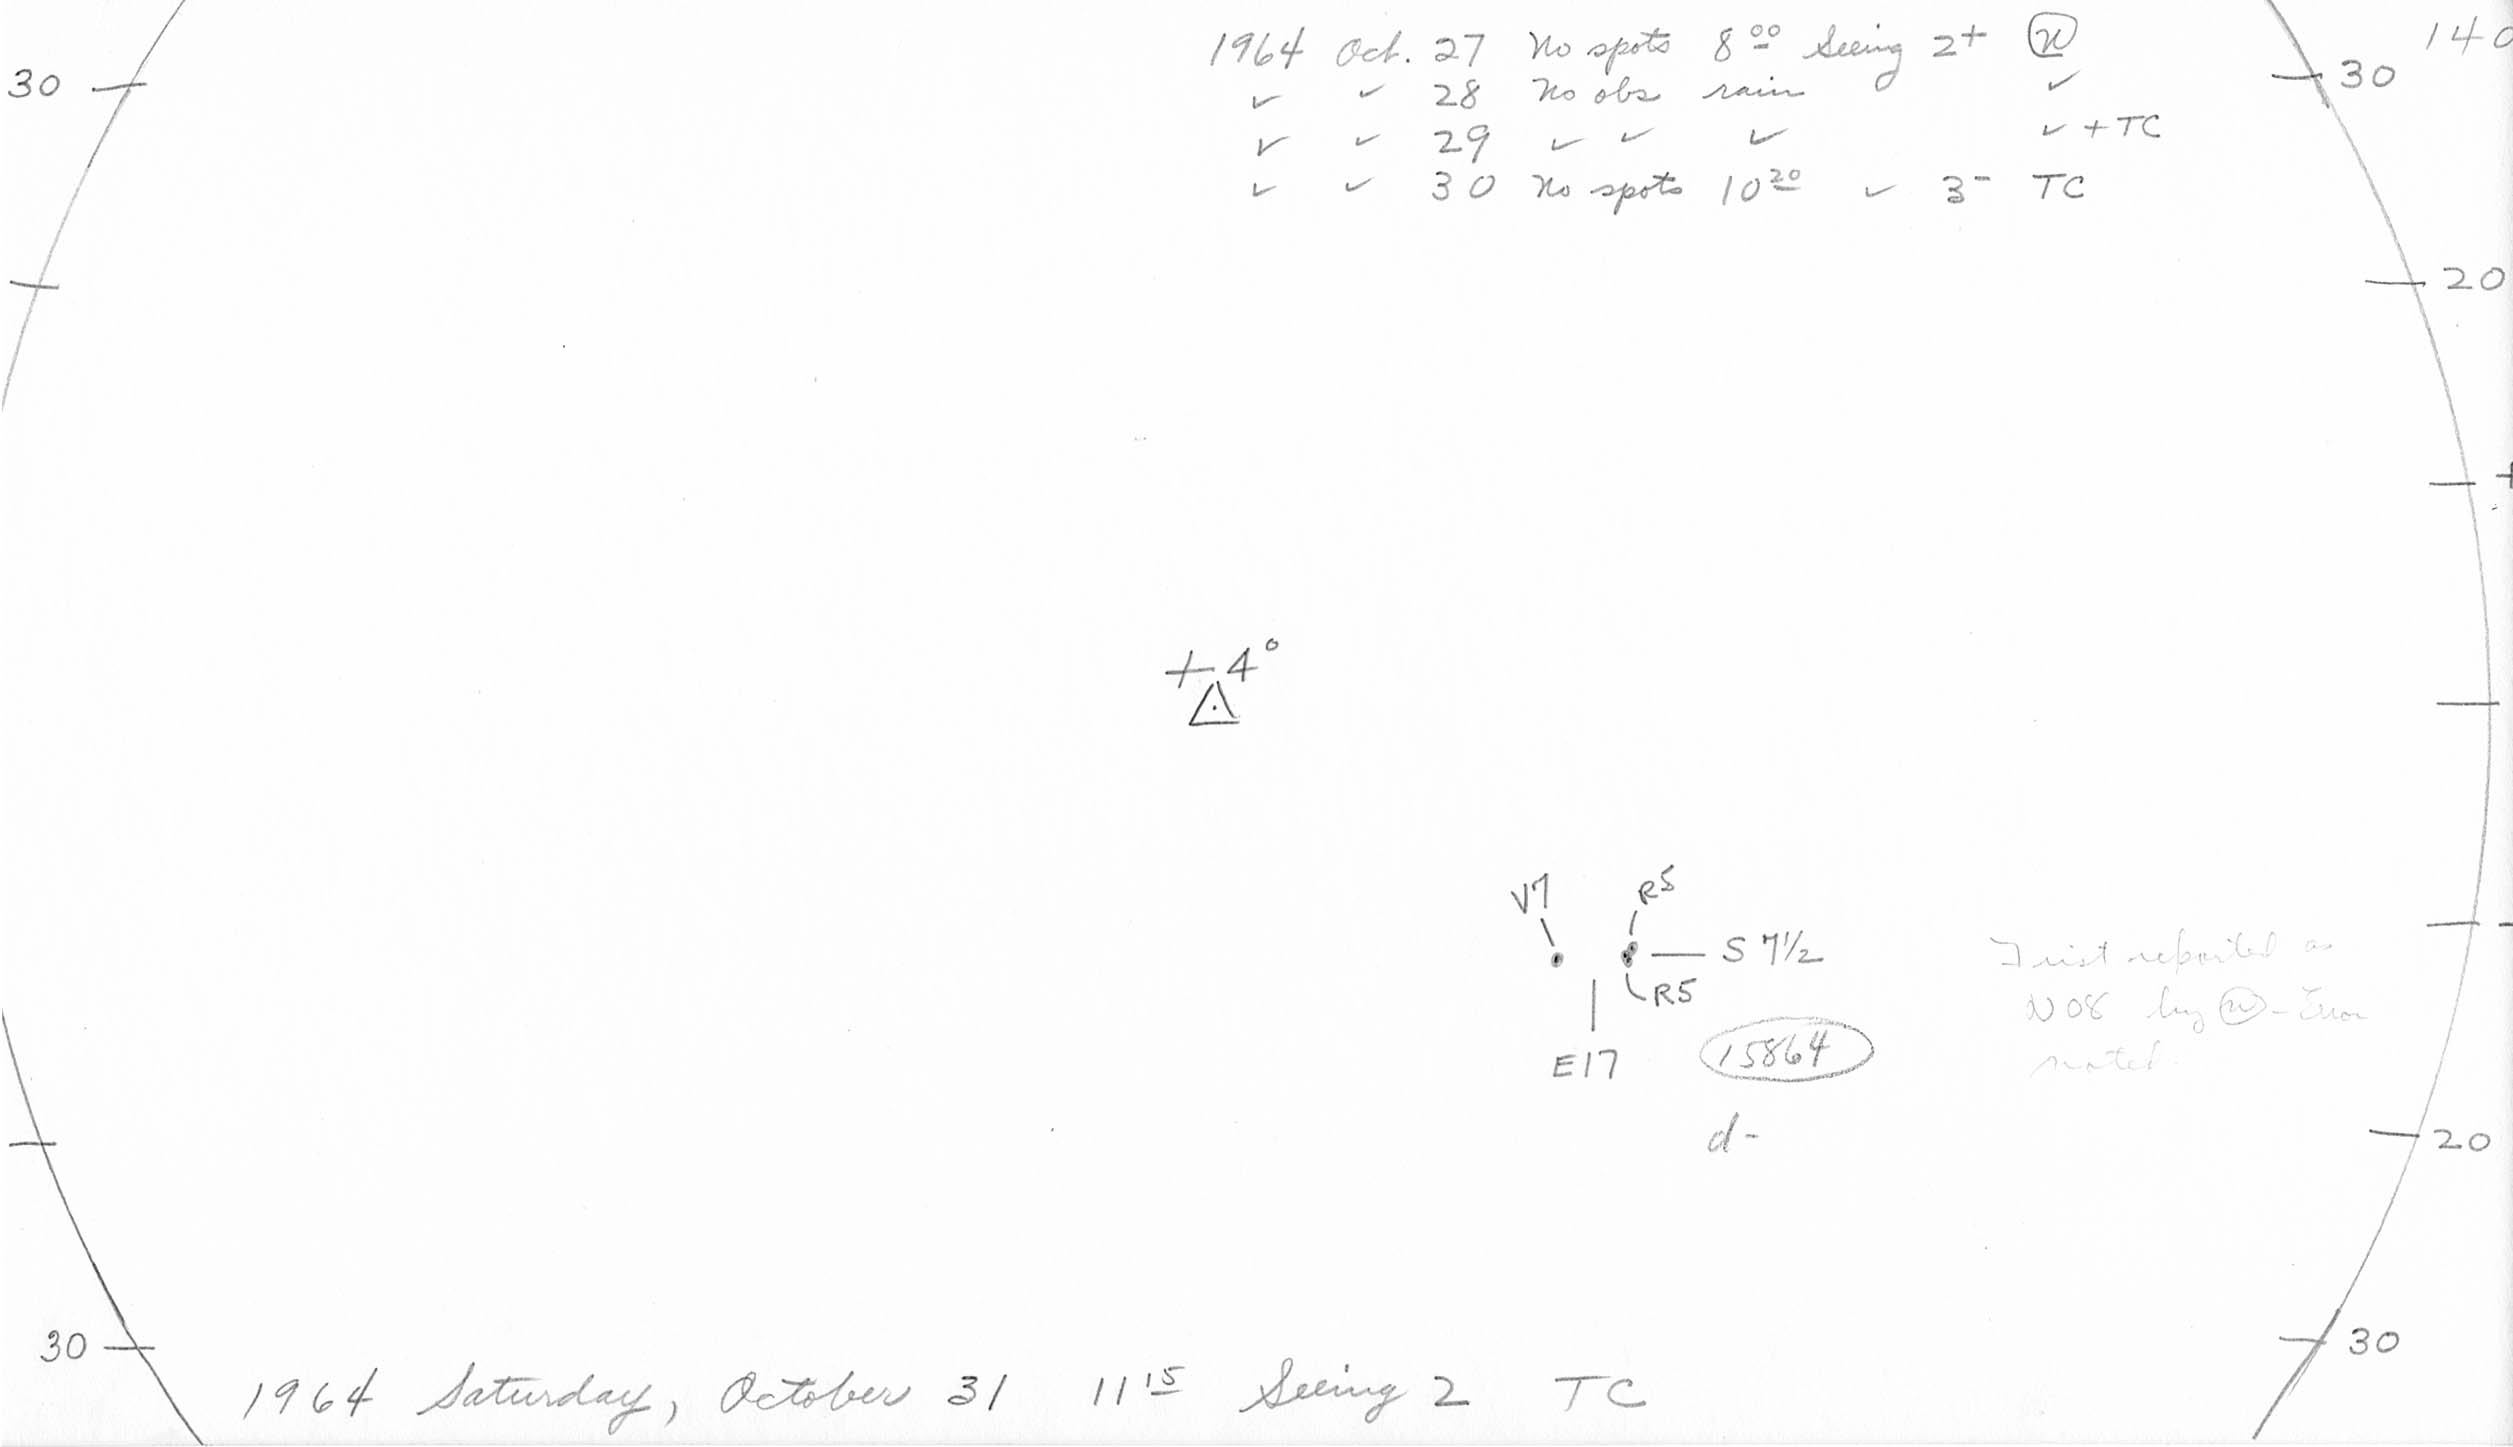 1964 Oct. 27 No spots 8⁰⁰ Seeing 2+ W
✓ ✓ 28 No obs rain ✓
✓ ✓ 29 ✓ ✓ ✓ ✓ + TC
✓ ✓ 30 No spots 10²⁰ ✓ 3- TC
140
30
30
20
+4°
V7
R5
S 7½
R5
E17
15864
d-
First reported as
N08 by W - Error
noted
20
30
30
1964 Saturday, October 31 11¹⁵ Seeing 2 TC